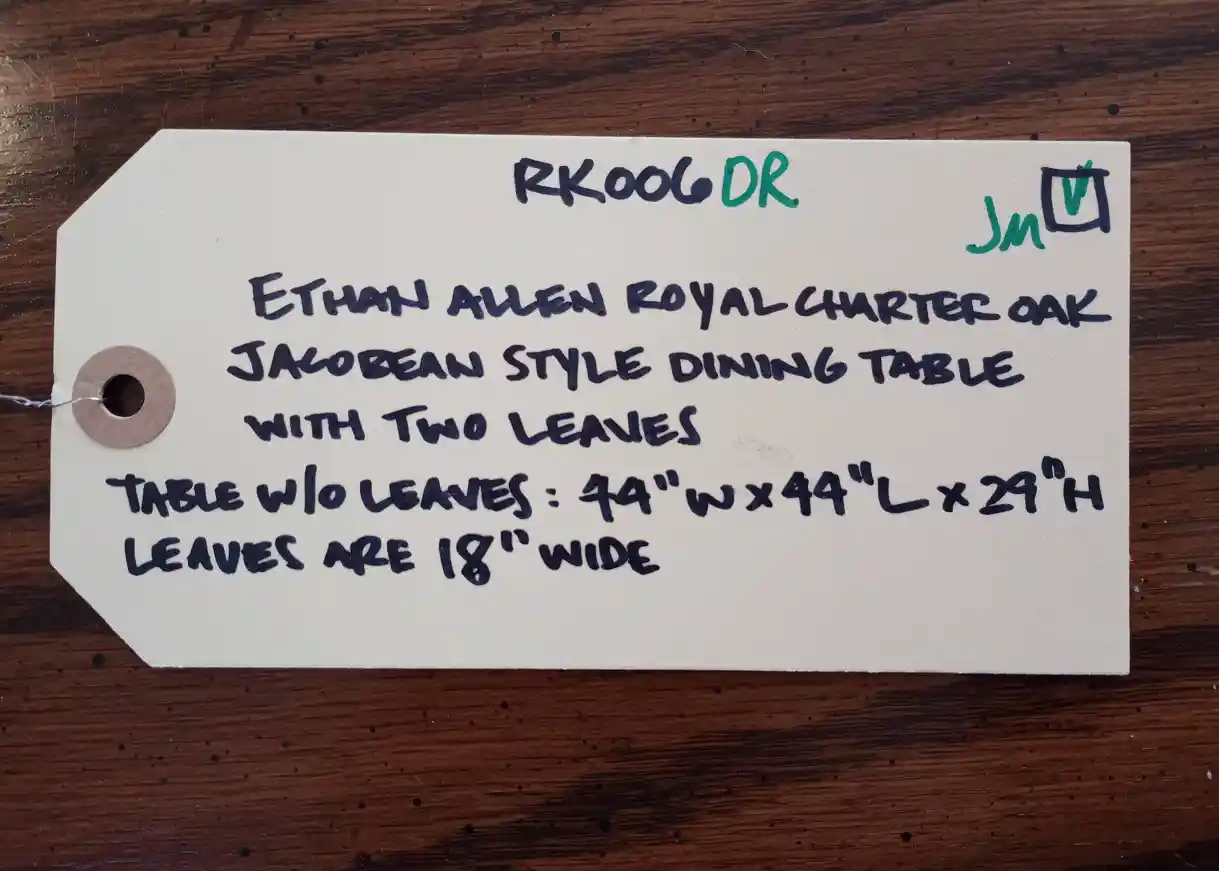 RK006 DR
JM
ETHAN ALLEN ROYAL CHARTER OAK
JACOBEAN STYLE DINING TABLE
WITH TWO LEAVES
TABLE W/O LEAVES: 44" W x 44" L x 29" H
LEAVES ARE 18" WIDE